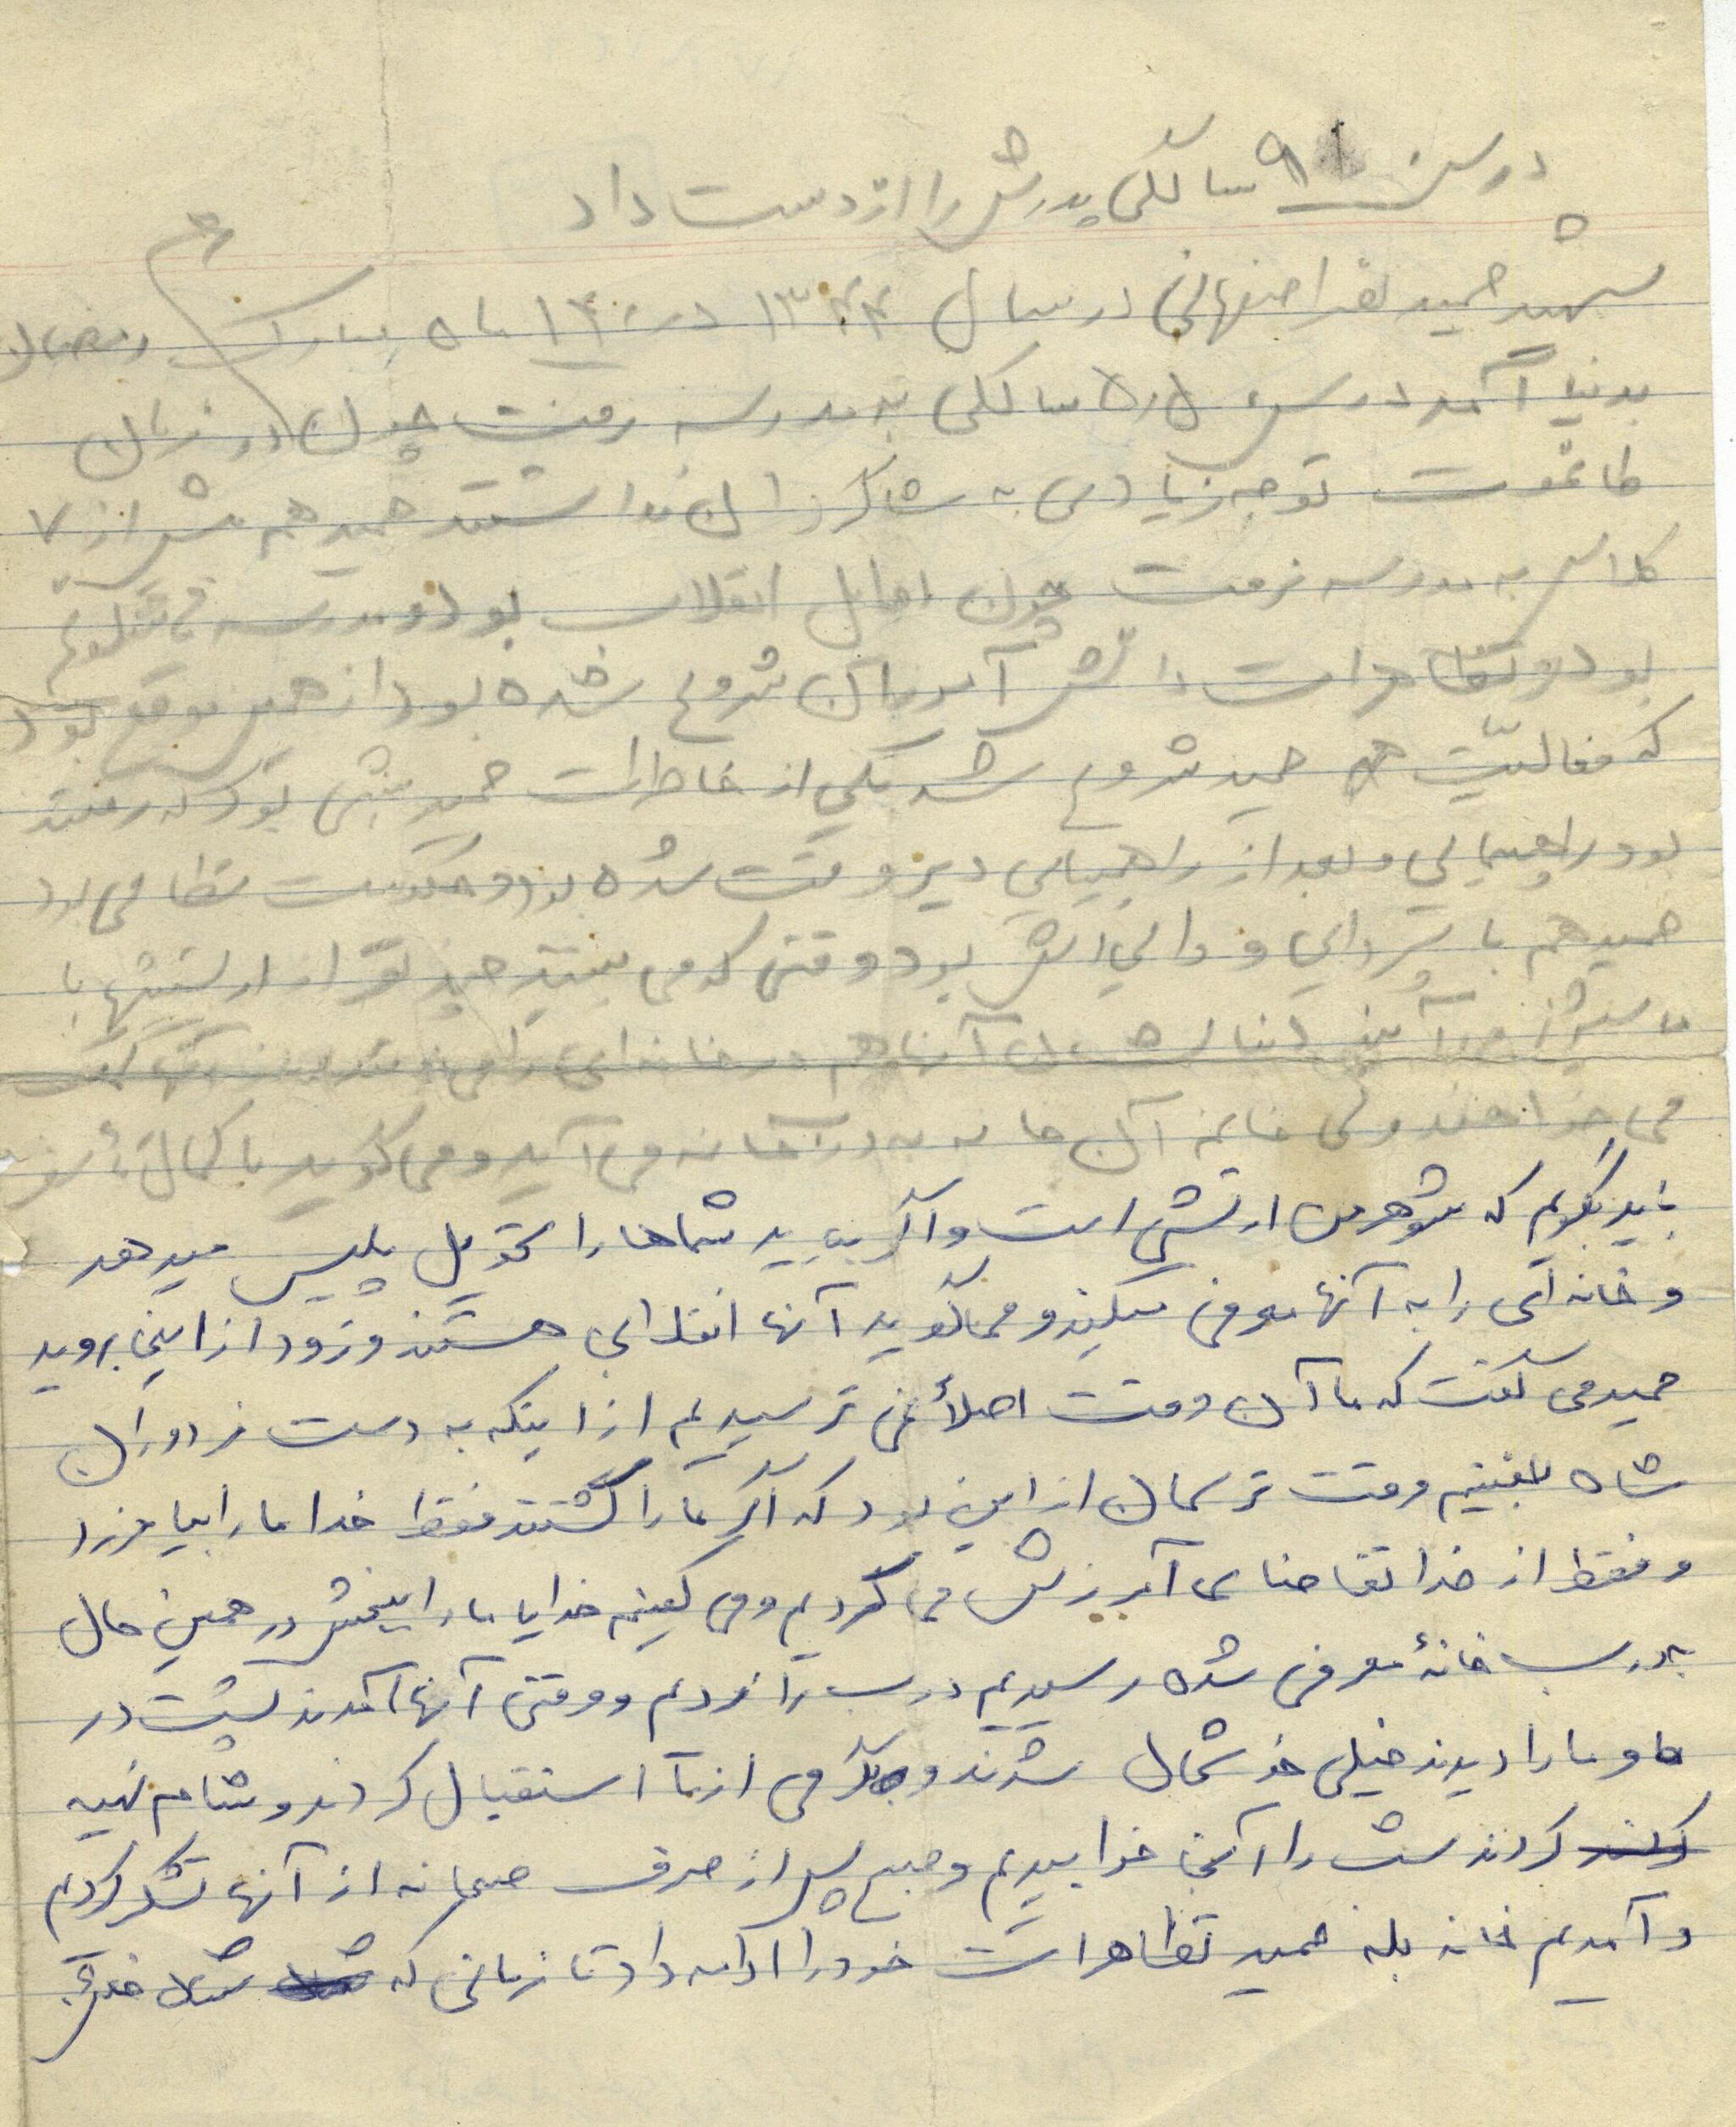 در سن ۹ سالگی پدرش را از دست داد
شهید حمید اصفهانی در سال ۱۳۴۴ در ۱۴ ماه مبارک رمضان
بدنیا آمد در سن سالگی به مدرسه رفت چون در زمان
طاغوت توجه زیادی به شاگردان نداشتند حمید هم بیش از ۷
کلاس به مدرسه نرفت چون اوایل انقلاب بود و مدرسه
بود و تظاهرات دانش آموزان شروع شده بود از همین موقع بود
که فعالیّت حمید شروع شد یکی از خاطرات حمید بود که رفته
بود راهپیمایی و بعد از راهپیمایی دیر وقت شده بود و حکومت نظامی بود
حمید هم با پسردایی و دائی اش بود وقتی که می بینند چند نفر از ارتشیها با
ماشین می آیند دنبالشان آنها هم در خانه ای را می زنند
می خواهند ولی خانم آن خانه به در خانه می آید و می گوید با کمال تأسف
باید بگویم که شوهر من ارتشی است و اگر بیاید شماها را تحویل پلیس میدهد
و خانه ای را به آنها معرفی میکند و میگوید آنها انقلابی هستند و زود از اینجا بروید
حمید می گفت که ما آن وقت اصلاً نمی ترسیدیم از اینکه به دست مزدوران
شاه بیفتیم وقت ترسمان از این بود که اگر ما را کشتند فقط خدا ما را بیامرزد
و فقط از خدا تقاضای آمرزش می کردیم و می گفتیم خدایا ما را ببخش در همین حال
بدرب خانهٔ معرفی شده رسیدیم درب را زدیم و وقتی آنها آمدند پشت در
و ما را دیدند خیلی خوشحال شدند و بگرمی از ما استقبال کردند و شام تهیه
کردند شب را آنجا خوابیدیم و صبح پس از صرف صبحانه از آنها تشکر کردیم
و آمدیم خانه بله حمید تظاهرات خود را ادامه داد تا زمانی که